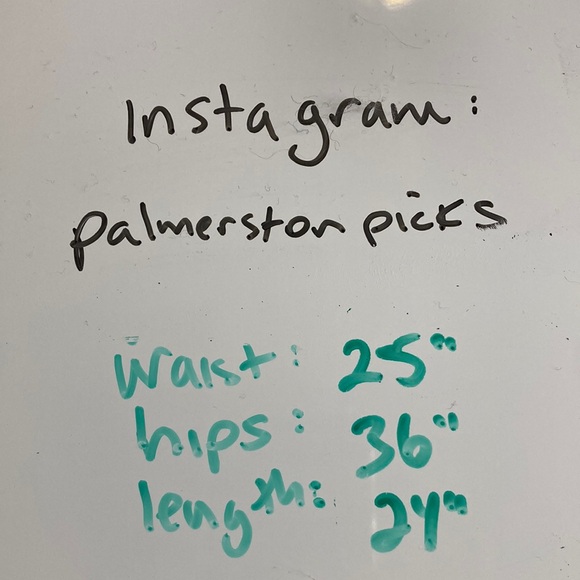 Instagram:
palmerston picks
waist: 25"
hips: 36"
length: 24"